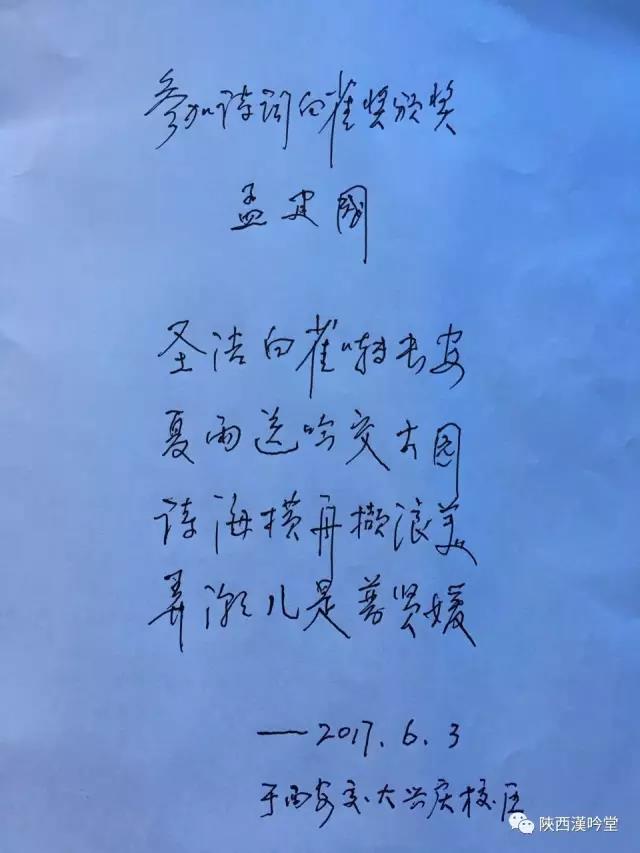 参加诗词白雀奖颁奖
孟建国
圣洁白雀啭长安
夏雨送吟交大园
诗海横舟撷浪美
弄潮儿是普贤媛
——2017.6.3
于西安交大兴庆校区
陕西漢吟堂